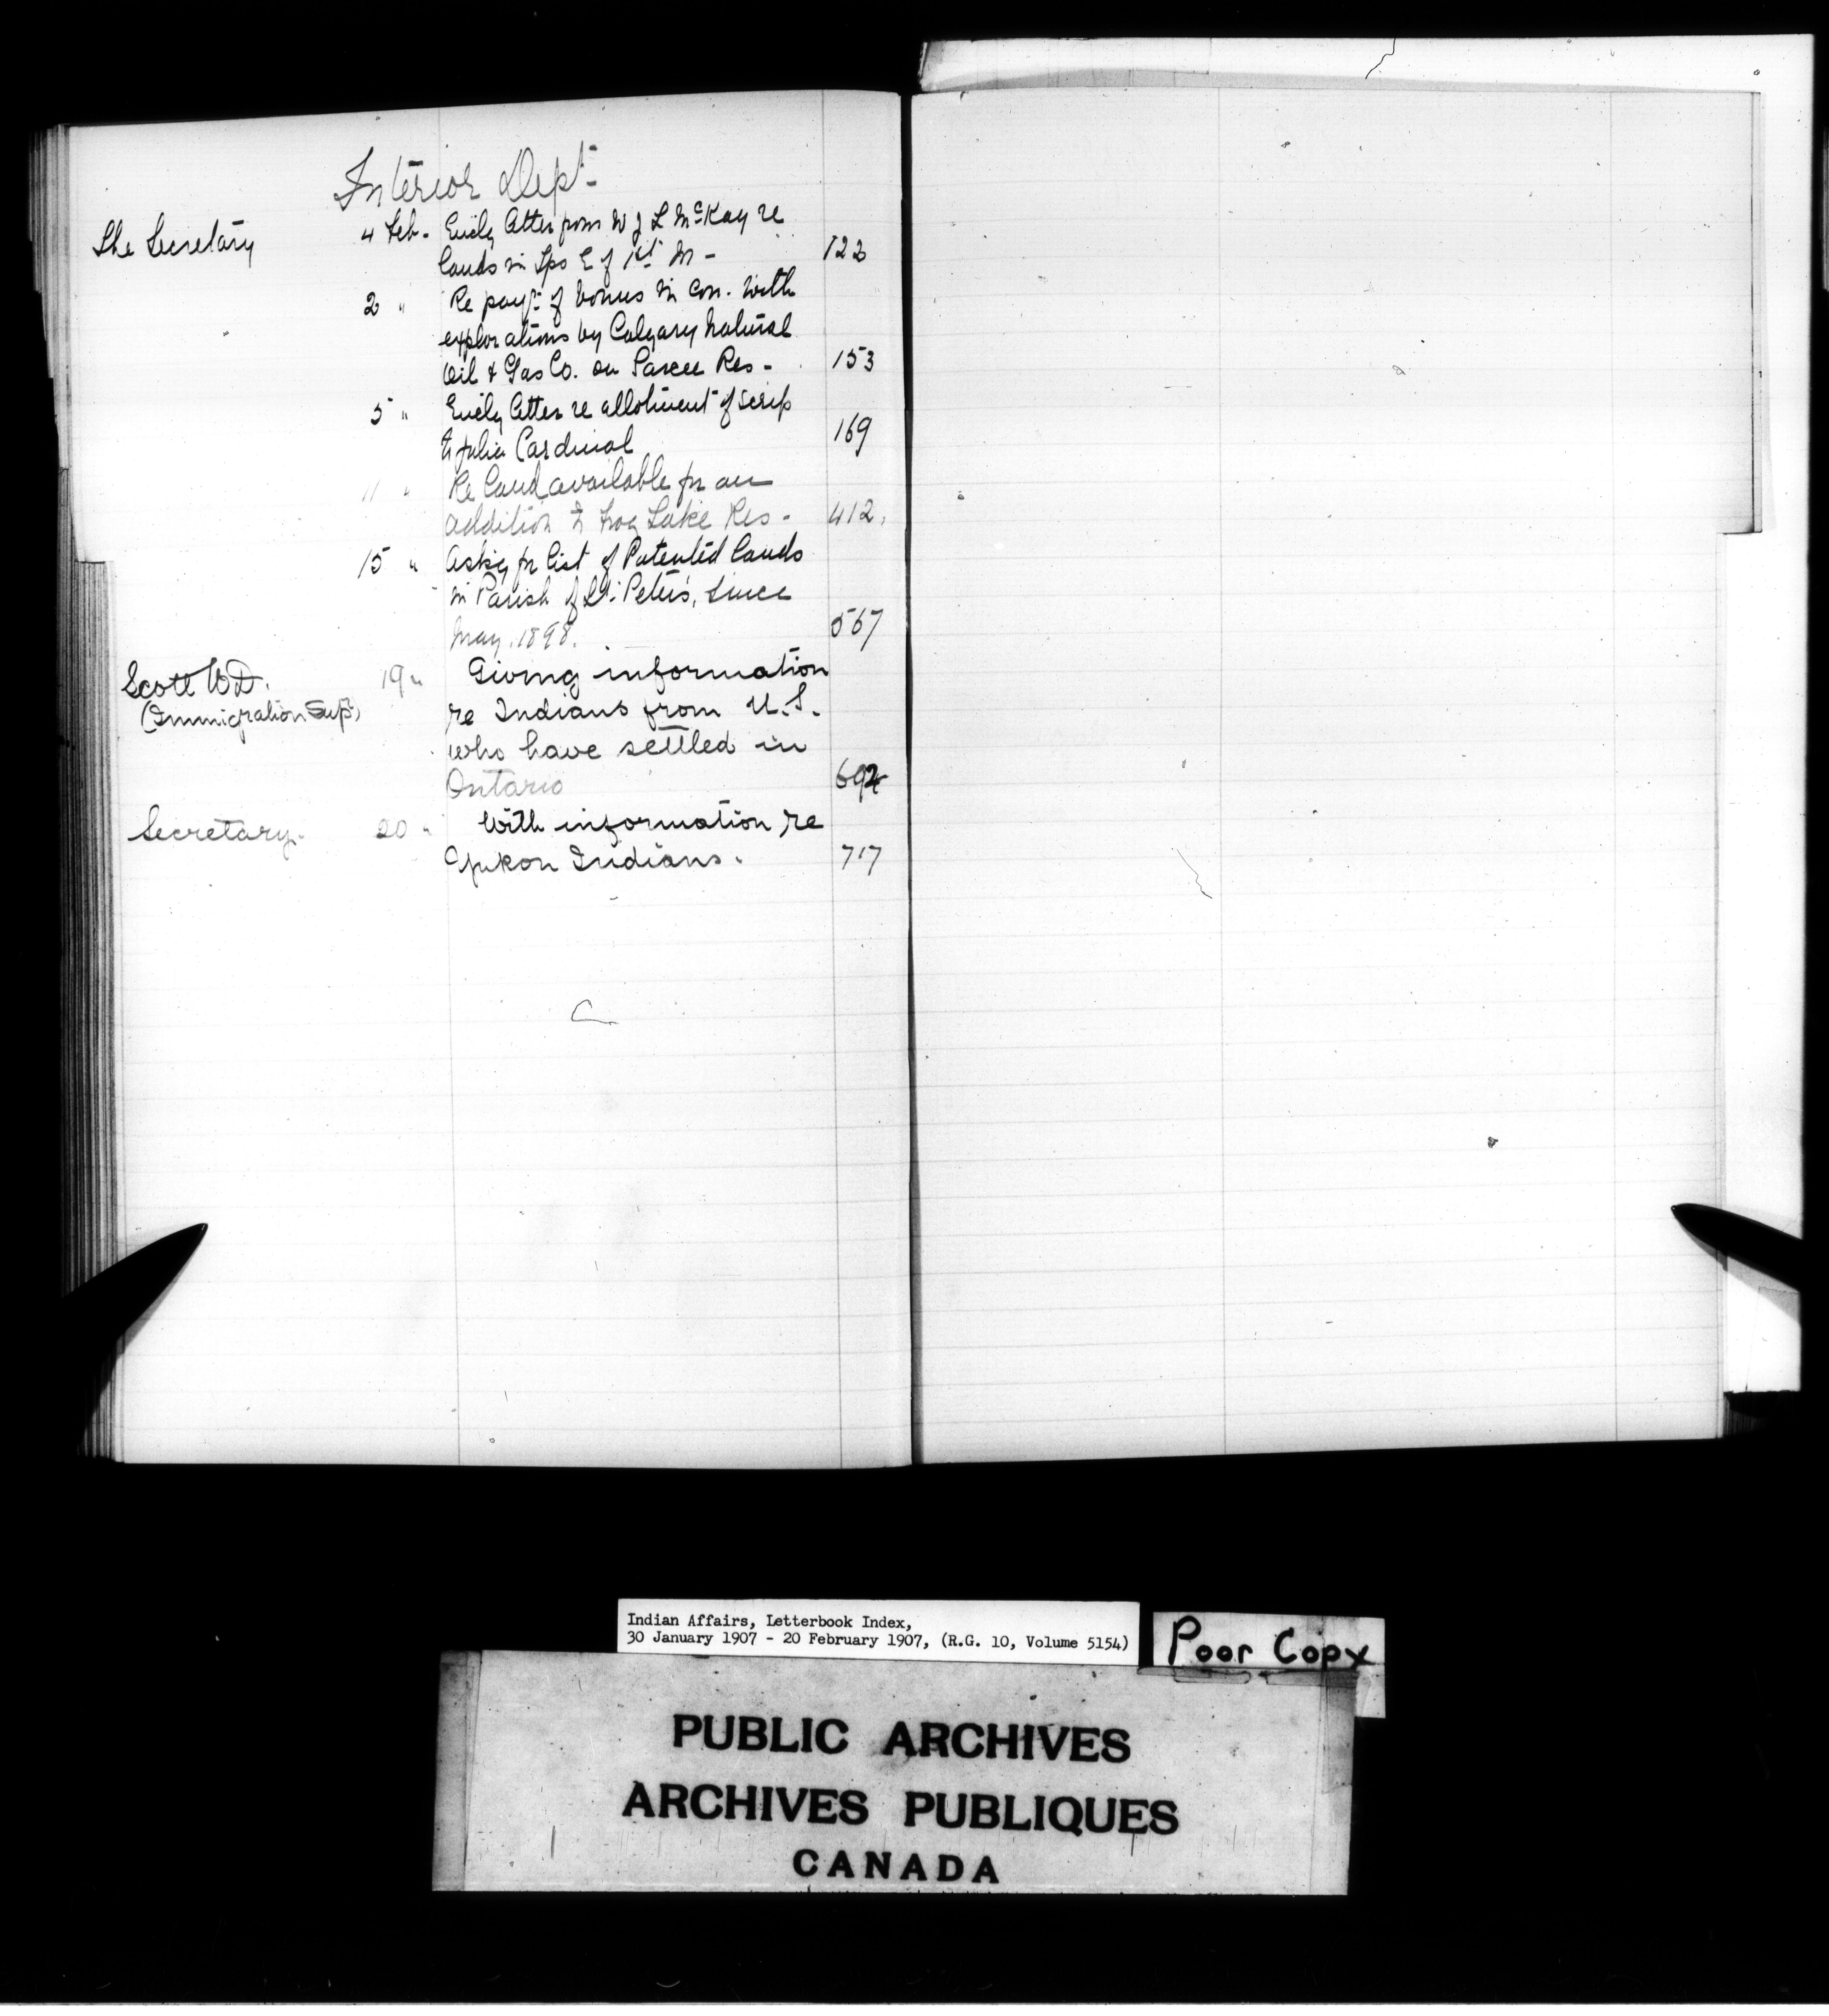 Interior Dept
The Secretary 4 Feb - Encly letter from W J L McKay re
lands in Tps E of 1st M - 122
2 " Re payt of bonus in con. with
explorations by Calgary Natural
Oil & Gas Co. on Sarcee Res - 153
5 " Encly letter re allotment of scrip
to Julia Cardinal 169
11 " Re land available for an
addition to Frog Lake Res - 412.
15 " Asking for list of Patented lands
in Parish of St. Peter's, since
May, 1898. 567
Scott W.D. 19 " Giving information
(Immigration Supt) re Indians from U.S.
who have settled in
Ontario 692
Secretary - 20 " With information re
Yukon Indians. 717
Indian Affairs, Letterbook Index,
30 January 1907 - 20 February 1907, (R.G. 10, Volume 5154)
Poor Copy
PUBLIC ARCHIVES
ARCHIVES PUBLIQUES
CANADA